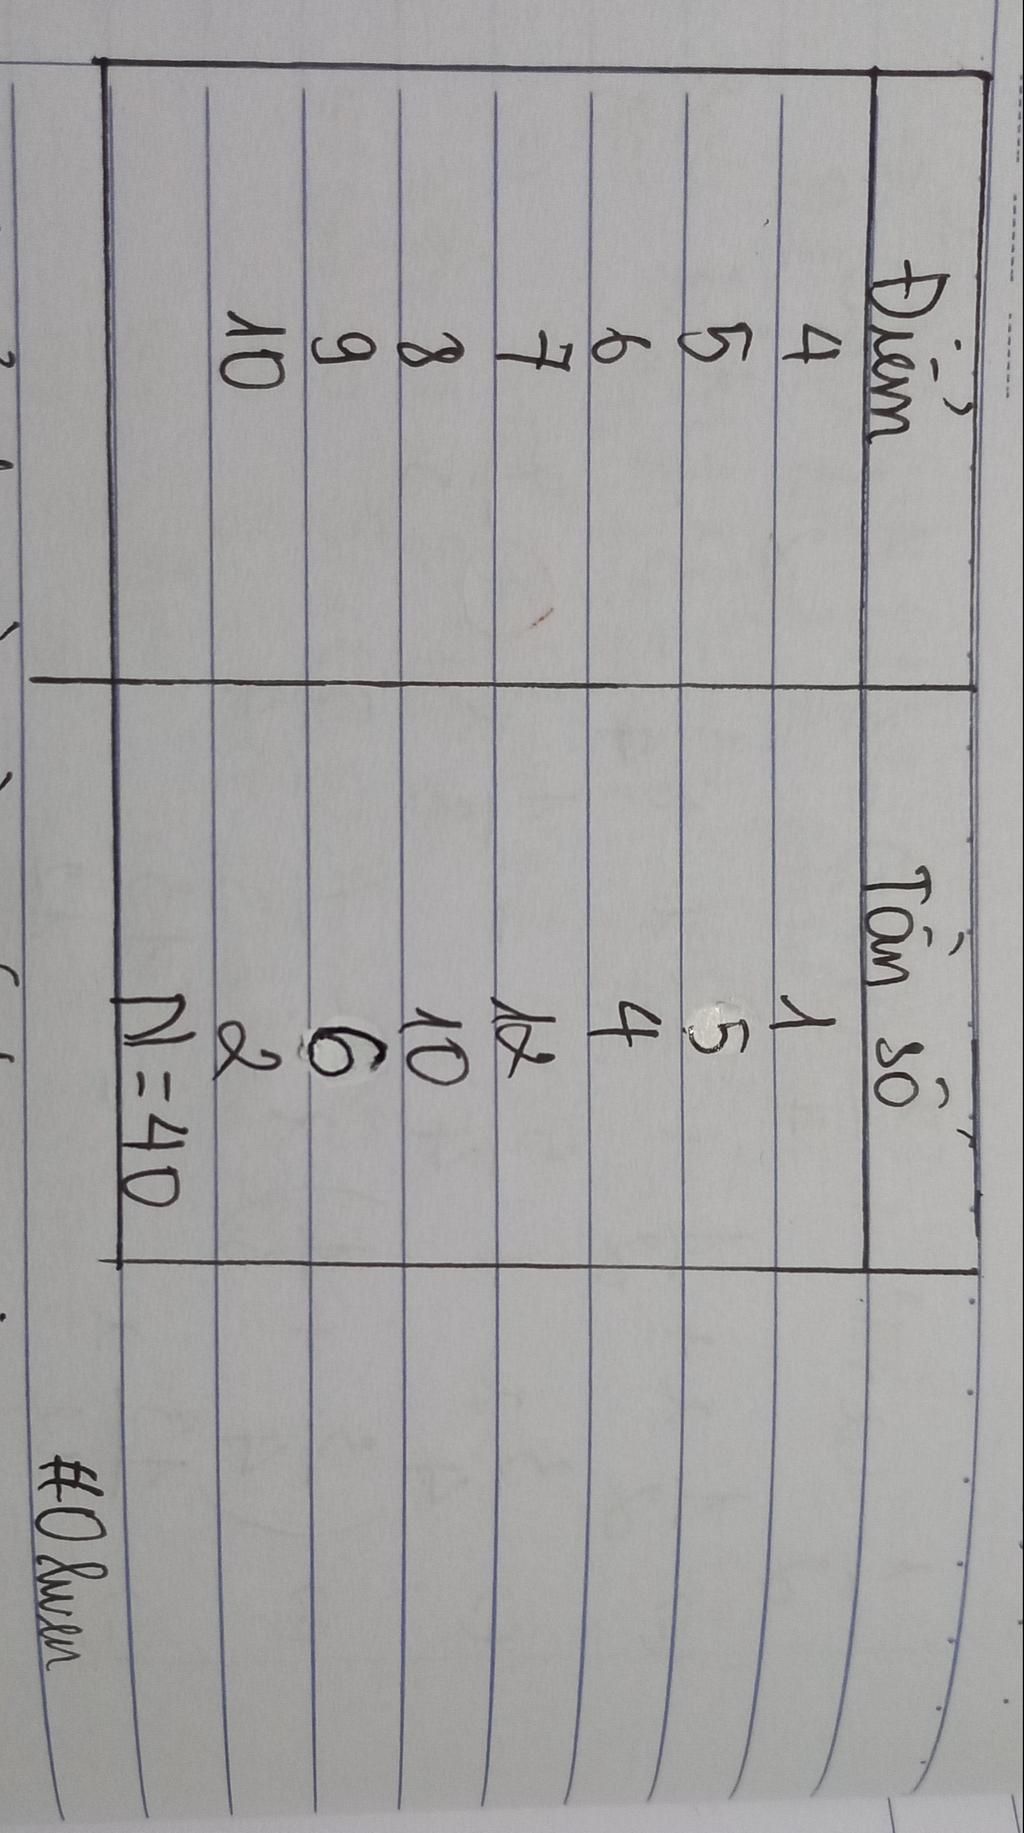 Điểm Tần số
4 1
5 5
6 4
7 12
8 10
9 6
10 2
N = 40